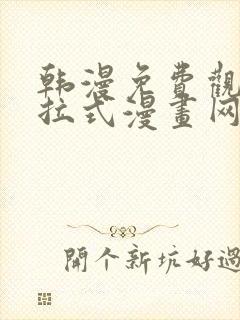 韩漫免費觀
拉式漫畫网
開个新坑好過